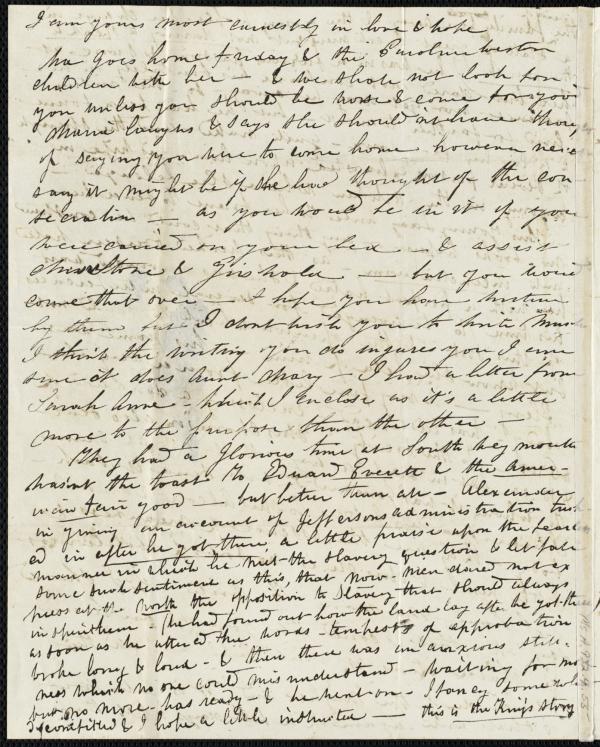 I am yours most earnestly in love & hope
Ma goes home Friday & the Caroline Weston
children with her — & we shall not look for
you unless you should be worse & come for you
Maria laughs & says she should n't have thou,
of saying you were to come home however nec
say it might be if she had thought of the con
secration — as you would be in it if you
were carried on your bed — & assist
& Griswold — but you would
come that over — I hope you have written
by them but I dont wish you to write much
I think the writing you do injures you I am
sure it does Aunt Mary — I had a letter from
Sarah Anne which I enclose as it's a little
more to the purpose than the other —
They had a glorious time at South Weymouth
wasnt the toast to Edward Everett & the Amer-
ican Fair good — but better than all — Alexander
in giving an account of Jeffersons administration
ed in after he got there a little praise upon the
manner in which he met the slavery question & let fall
some such sentiment as this, that now men dared not ex
press at the north the opposition to slavery that should always
inspirit them he had found out how the land lay after he got there
as soon as he uttered the words — tempests of approbation
broke long & loud — & then there was an anxious still-
ness which no one could misunderstand — waiting for more
but no more was ready — & he went on — I fancy some
& I hope a little instructed — this is the Kings story